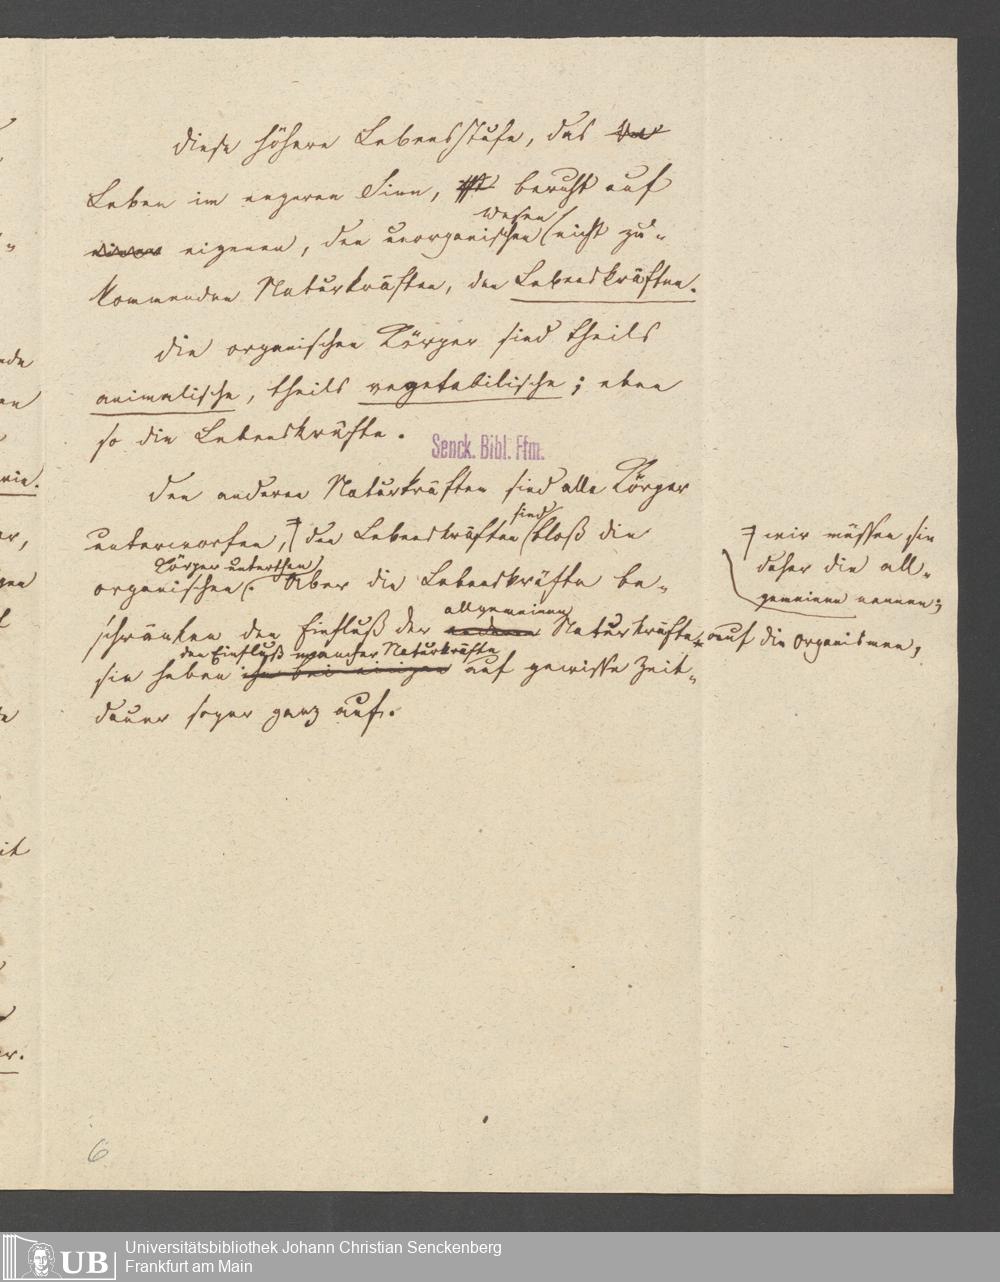 Diese höhere Lebensstufe, das
Leben im engeren Sinn, beruht auf
wesen
eigenen, den unorganischen (nicht zu-
kommenden Naturkräften, den Lebenskräften.
Die organischen Körper sind theils
animalische, theils vegetabilische; eben
so die Lebenskräfte.
Senck. Bibl. Ffm.
Den anderen Naturkräften sind alle Körper
sind
unterworfen, den Lebenskräften (bloß die
Körper unterthan
organischen (. Aber die Lebenskräfte be-
allgemeinen
schränken den Einfluß der anderen Naturkräfte auf die Organismen,
den Einfluß mancher Naturkräfte
sie heben ihn bei einigen auf gewisse Zeit-
dauer sogar ganz auf.
wir müssen sie
daher die all-
gemeinen nennen;
6
UB
Universitätsbibliothek Johann Christian Senckenberg
Frankfurt am Main